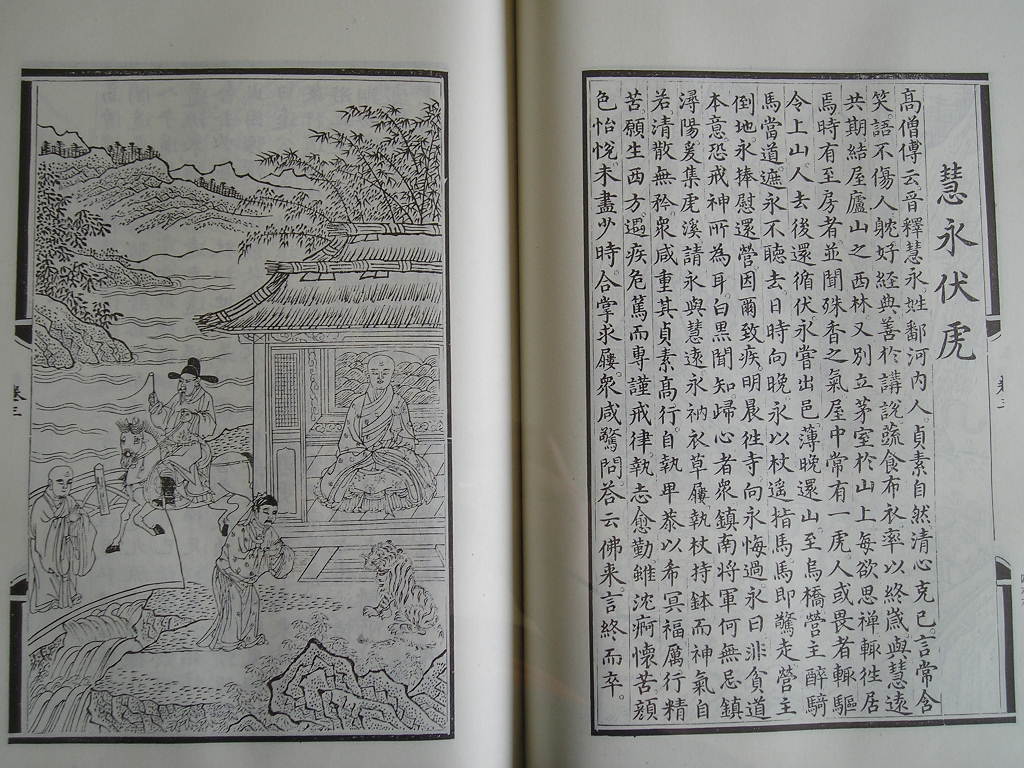 慧永伏虎
高僧傳云晉釋慧永姓鄱河內人。貞素自然清心克己。言常含
笑。語不傷人。躭好經典善於講說。蔬食布衣率以終歲。與慧遠
共期結屋廬山之西林。又別立茅室於山上。每欲思禪輒徃居
焉。時有至房者並聞殊香之氣。屋中常有一虎。人或畏者輒驅
令上山。人去後還循伏。永嘗出邑。薄晚還山。至烏橋。營主醉騎
馬當道遮永不聽去。日時向晚。永以杖遙指馬。馬即驚走。營主
倒地。永捧慰還營。因爾致疾。明晨徃寺向永悔過。永曰非貧道
本意恐戒神所為耳。白黑聞知歸心者眾。鎮南將軍何無忌鎮
潯陽。爰集虎溪請永與慧遠。永衲衣草屨執杖持鉢而神氣自
若。清散無衿。眾咸重其貞素高行。自執卑恭以希冥福。厲行精
苦願生西方。遇疾危篤而專謹戒律執志愈勤。雖沈痾懷苦顔
色怡悅。未盡少時。合掌求屨。眾咸驚問。荅云佛來。言終而卒。
卷三
卷三